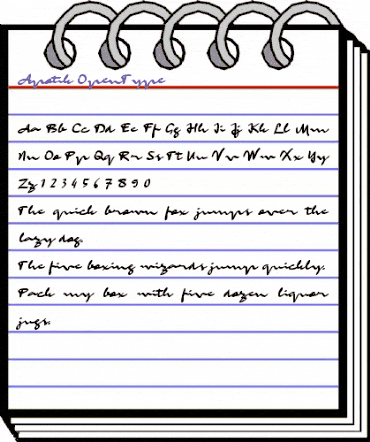 Apatik OpenType
Aa Bb Cc Dd Ee Ff Gg Hh Ii Jj Kk Ll Mm
Nn Oo Pp Qq Rr Ss Tt Uu Vv Ww Xx Yy
Zz 1 2 3 4 5 6 7 8 9 0
The quick brown fox jumps over the
lazy dog.
The five boxing wizards jump quickly.
Pack my box with five dozen liquor
jugs.